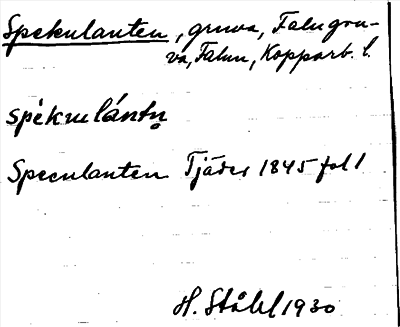 Spekulanten, gruva, Falu gru-
va, Falun, Kopparb. l.
spèkulántn̥
Speculanten Tjäder 1845 fol 1
H. Ståhl 1930